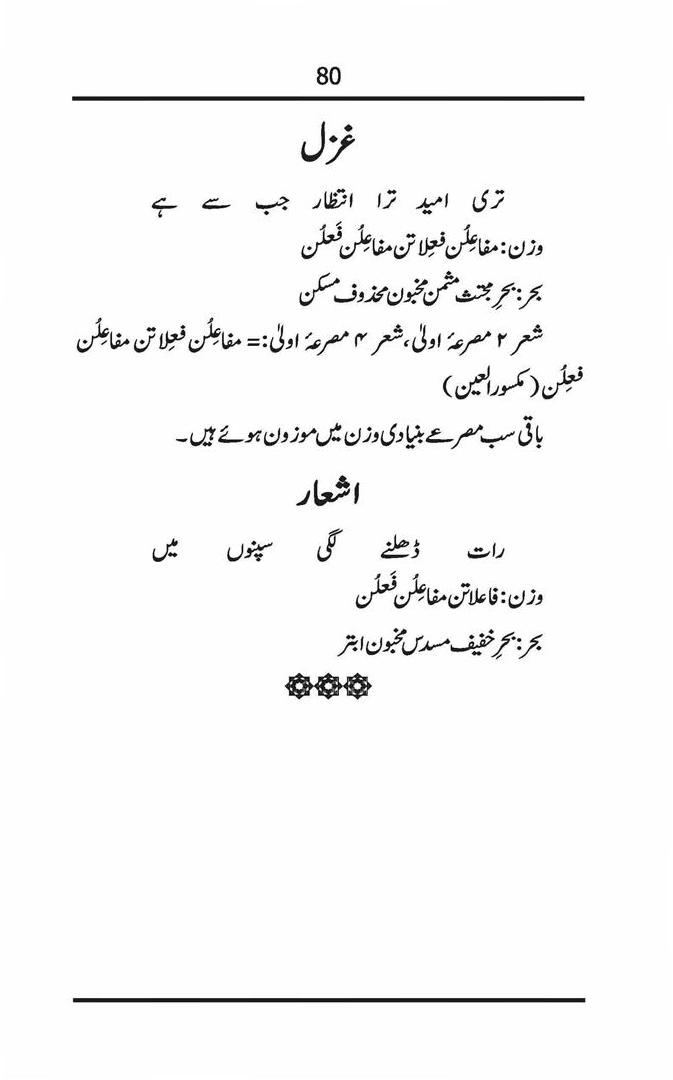 80
غزل
تری امید ترا انتظار جب سے ہے
وزن: مفاعِلُن فعِلاتن مفاعِلُن فَعلُن
بحر: بحرِ مجتث مثمن مخبون محذوف مسکن
شعر ۲ مصرعۂ اولیٰ، شعر ۴ مصرعۂ اولیٰ:= مفاعِلُن فعِلاتن مفاعِلُن
فعِلُن (مکسور العین)
باقی سب مصرعے بنیادی وزن میں موزون ہوئے ہیں۔
اشعار
رات ڈھلنے لگی سپنوں میں
وزن: فاعلاتن مفاعِلُن فَعلُن
بحر: بحرِ خفیف مسدس مخبون ابتر